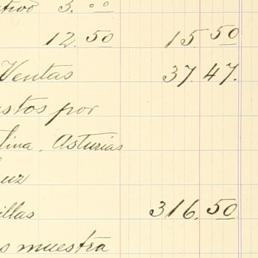 ctivo 3.00
12.50 15.50
Ventas 37.47.
stos por
lina, Asturias
uz
illas 316.50
s muestra